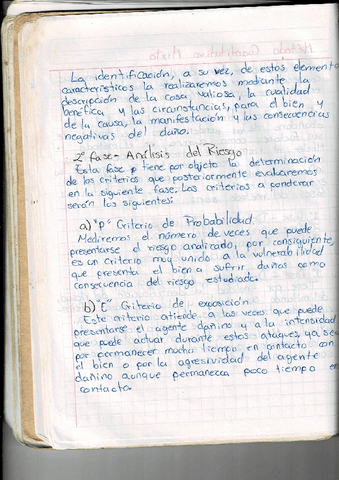 La identificación, a su vez, de estos elementos
característicos la realizaremos mediante la
descripción de la cosa valiosa, la cualidad
benéfica y las circunstancias, para el bien y
de la causa, la manifestación y las consecuencias
negativas del daño.
2ª Fase - Análisis del Riesgo
Esta fase tiene por objeto la determinación
de los criterios que posteriormente evaluaremos
en la siguiente fase. Los criterios a ponderar
serán los siguientes:
a) "P" Criterio de Probabilidad
Mediremos el número de veces que puede
presentarse el riesgo analizado, por consiguiente,
es un criterio muy unido a la vulnerabilidad
que presenta el bien a sufrir daños como
consecuencia del riesgo estudiado.
b) "E" Criterio de exposición
Este criterio atiende a las veces que puede
presentarse el agente dañino y a la intensidad
que puede actuar durante estos ataques, ya sea
por permanecer mucho tiempo en contacto con
el bien o por la agresividad del agente
dañino aunque permanezca poco tiempo en
contacto.